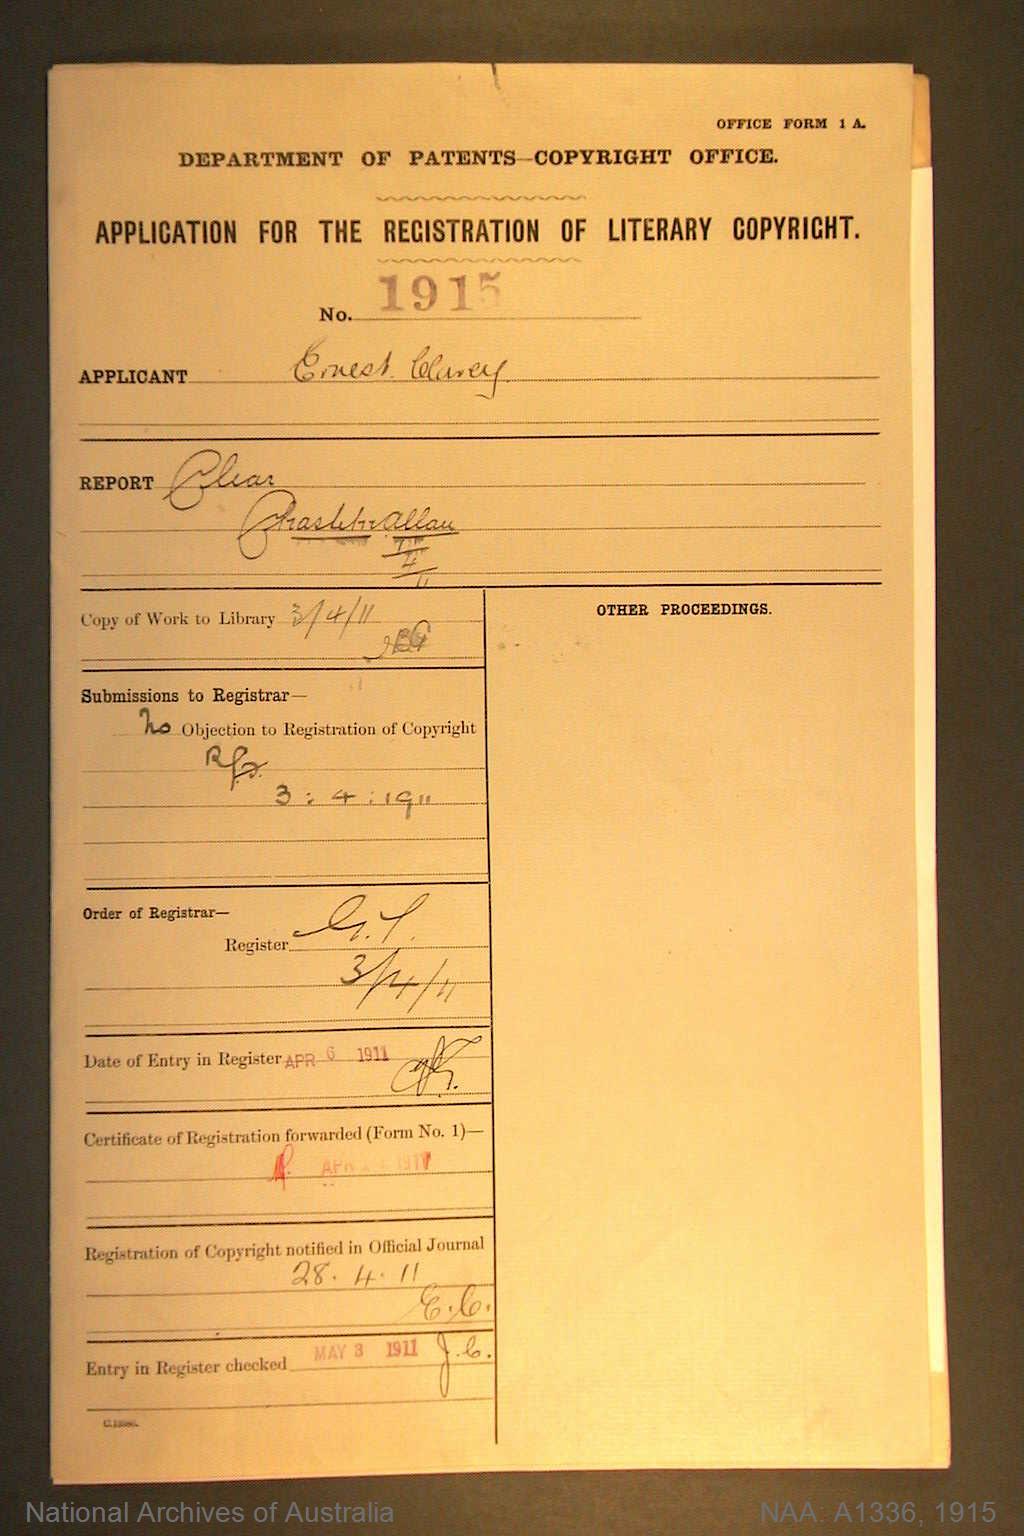 OFFICE FORM 1 A.
DEPARTMENT OF PATENTS—COPYRIGHT OFFICE.
APPLICATION FOR THE REGISTRATION OF LITERARY COPYRIGHT.
No. 1915
APPLICANT Ernest
REPORT Clear
Allan
Copy of Work to Library 3/4/11
Submissions to Registrar—
No Objection to Registration of Copyright
3:4:1911
Order of Registrar—
Register
3/4/11
Date of Entry in Register APR 6 1911
Certificate of Registration forwarded (Form No. 1)—
APR 1911
Registration of Copyright notified in Official Journal
28.4.11
E.C.
Entry in Register checked MAY 3 1911 J.C.
OTHER PROCEEDINGS.
National Archives of Australia
NAA: A1336, 1915